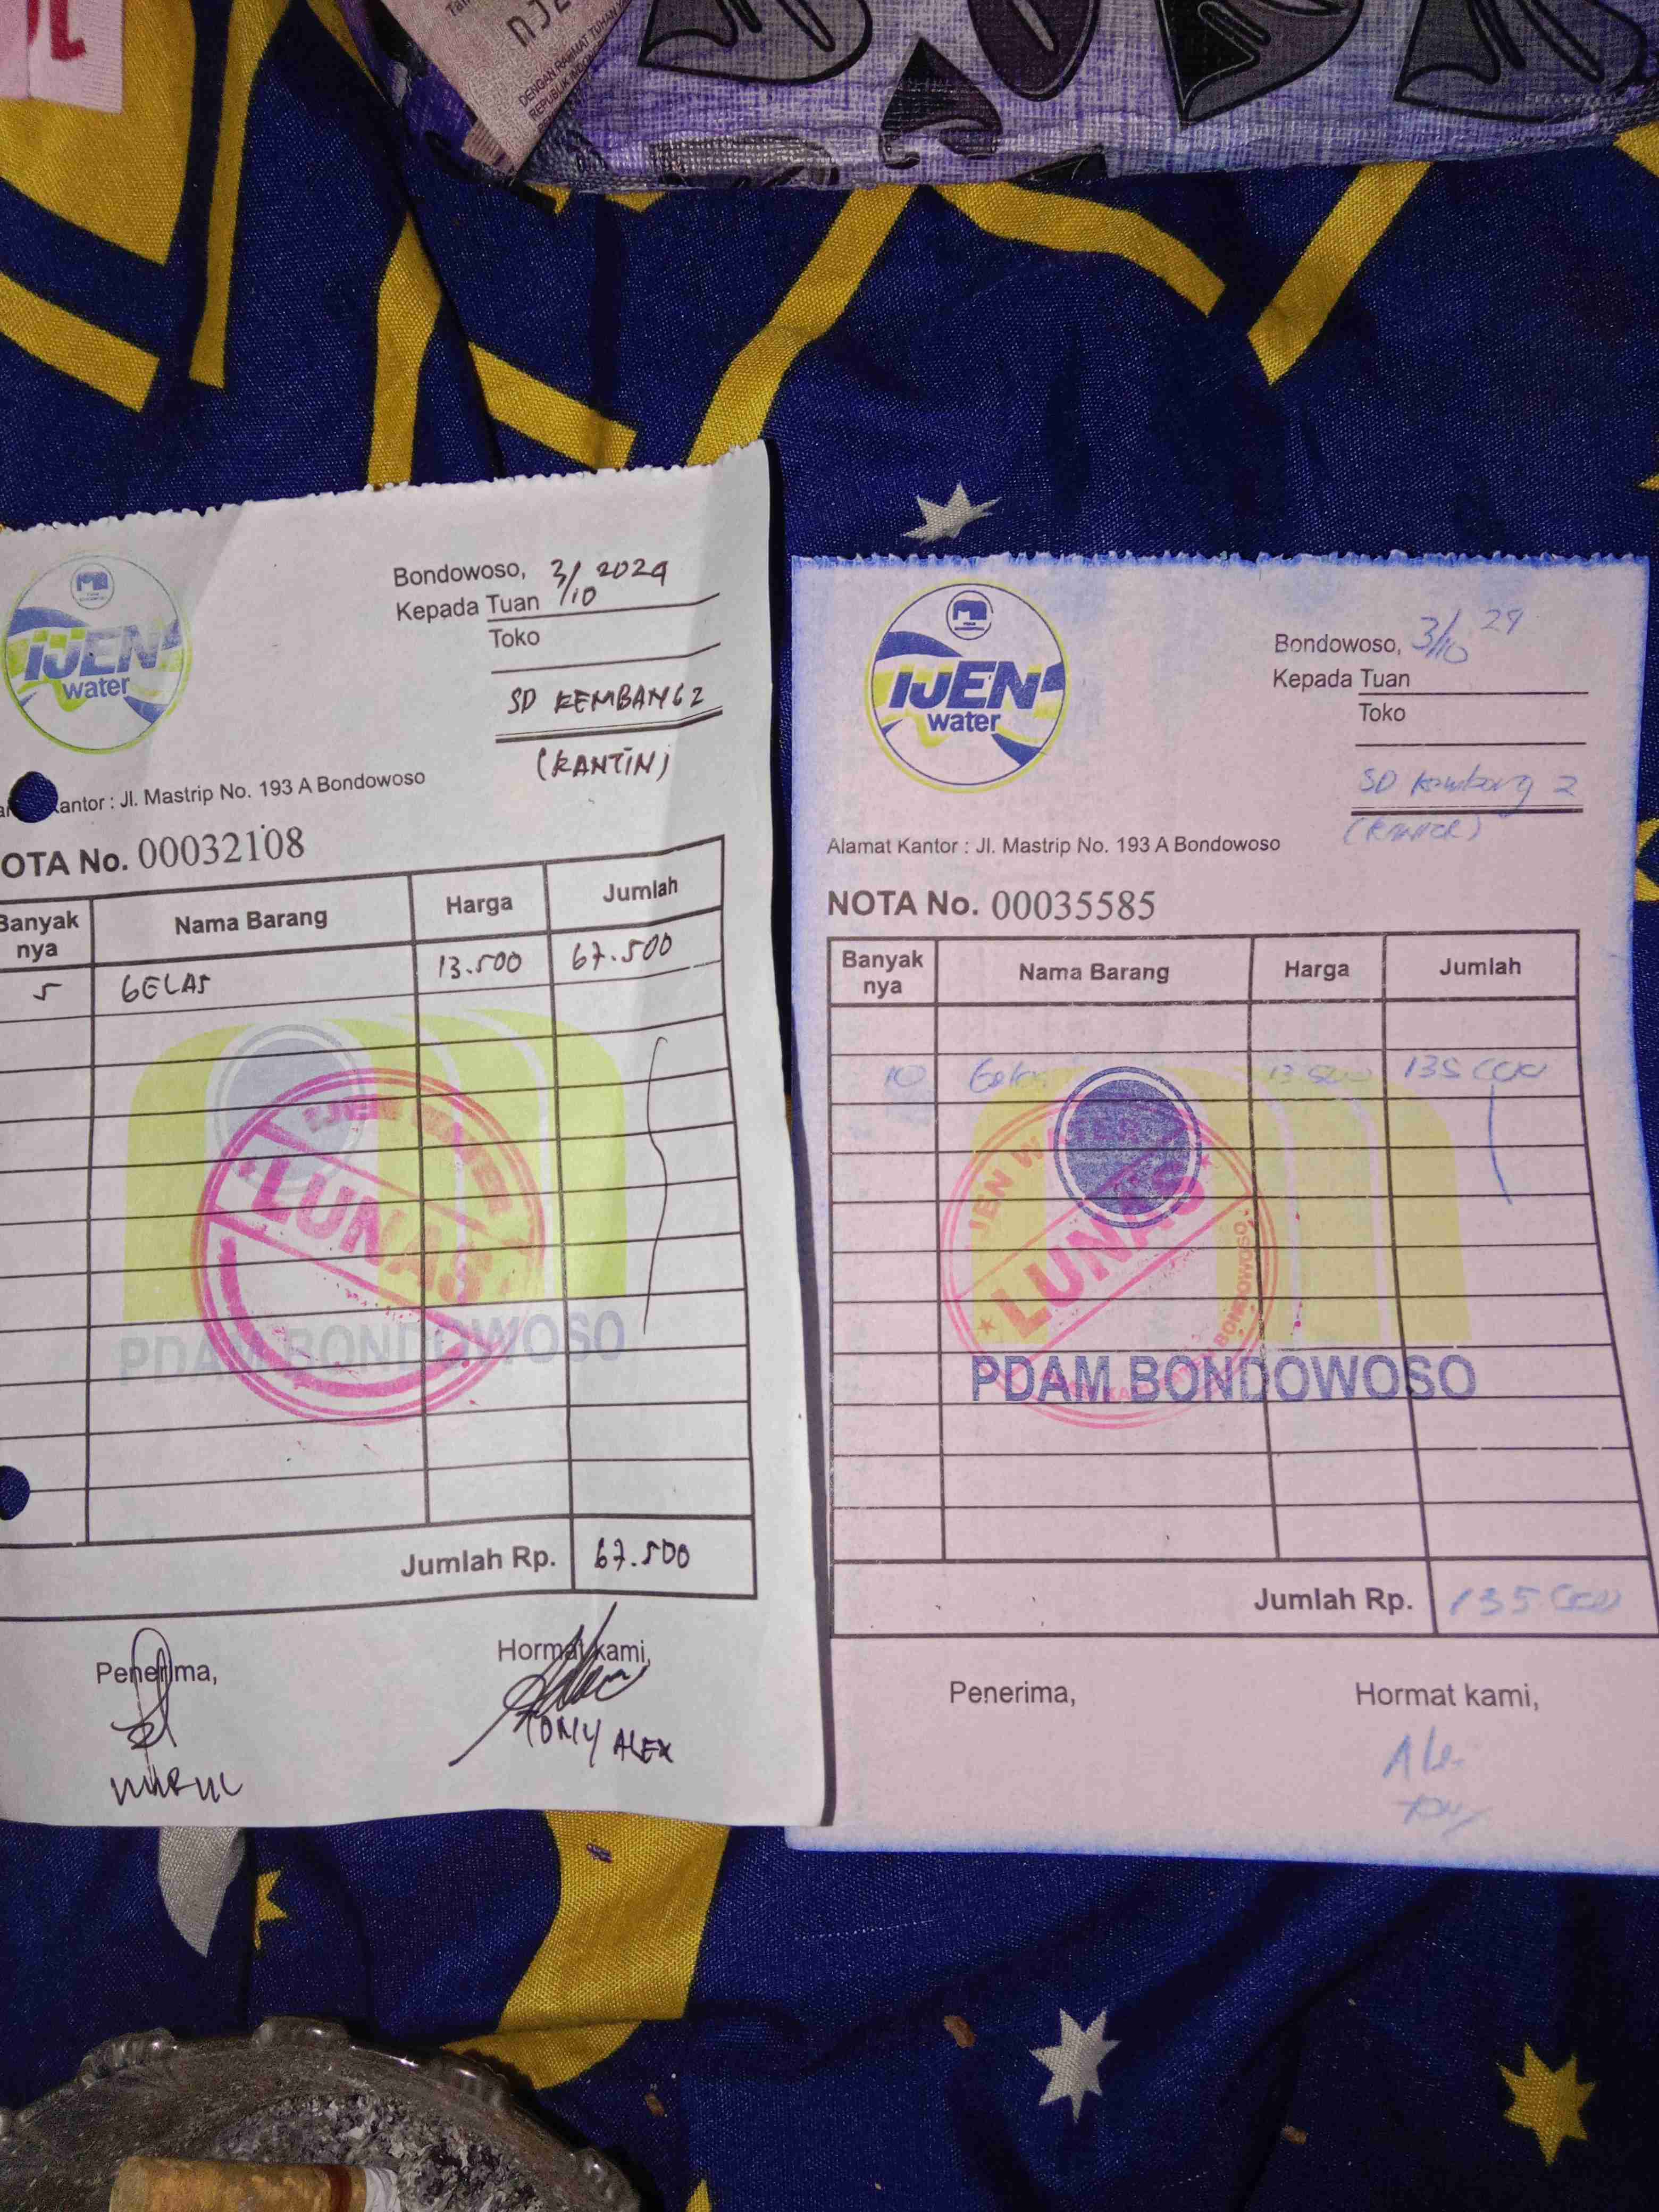 DENGAN RAHMAT TUHAN
REPUBLIK INDONESIA
IJEN
water
Bondowoso, 3/10 2024
Kepada Tuan
Toko
SD KEMBANG 2
(KANTIN)
Kantor : Jl. Mastrip No. 193 A Bondowoso
OTA No. 00032108
Banyak nya Nama Barang Harga Jumlah
5 GELAS 13.500 67.500
IJEN WATER
LUNAS
PDAM BONDOWOSO
Jumlah Rp. 67.500
Penerima, Hormat kami,
NURUL TOMY ALEX
IJEN
water
Bondowoso, 3/10 24
Kepada Tuan
Toko
SD Kembang 2
Alamat Kantor : Jl. Mastrip No. 193 A Bondowoso
NOTA No. 00035585
Banyak nya Nama Barang Harga Jumlah
10 Gelas 13 500 135 000
IJEN WATER
LUNAS
BONDOWOSO
PDAM BONDOWOSO
Jumlah Rp. 135 000
Penerima, Hormat kami,